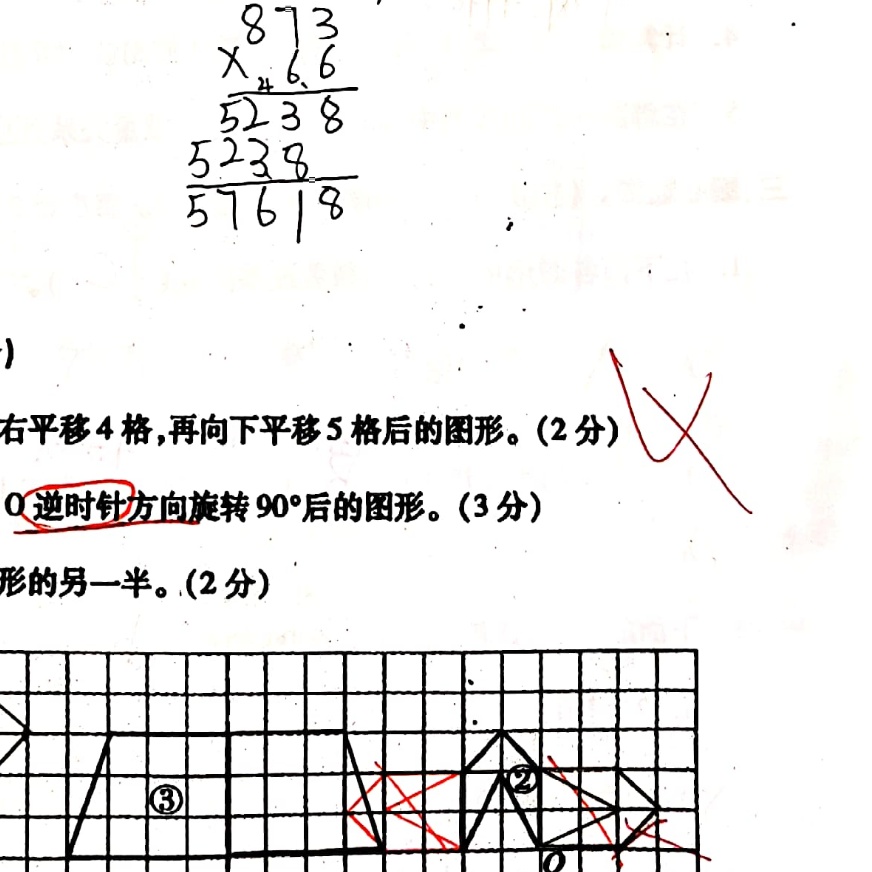 873
× 66
4
5238
5238
57618
)
右平移4格,再向下平移5格后的图形。(2分)
O逆时针方向旋转90°后的图形。(3分)
形的另一半。(2分)
②
③
O